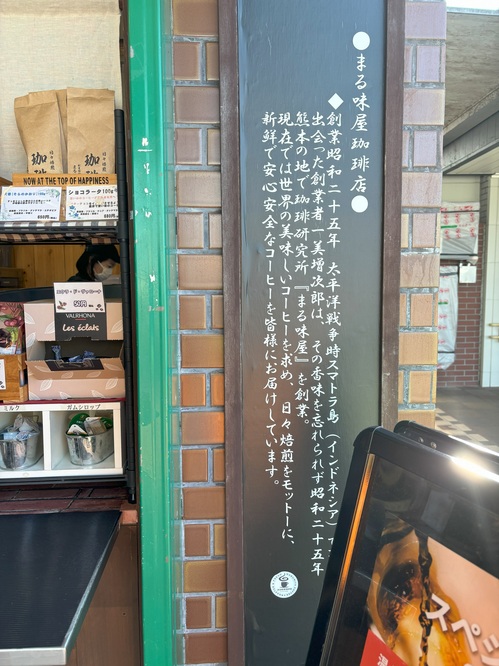 ●まる味屋珈琲店●
◆創業昭和二十五年　太平洋戦争時スマトラ島（インドネシア）で
出会った創業者一美増次郎は、その香味を忘れられず昭和二十五年
熊本の地で珈琲研究所『まる味屋』を創業。
現在では世界の美味しいコーヒーを求め、日々焙煎をモットーに、
新鮮で安心安全なコーヒーを皆様にお届けしています。
珈琲
珈琲
NOW AT THE TOP OF HAPPINESS
ショコラーデ
VALRHONA
Les éclats
ミルク
ガムシロップ
スペシ